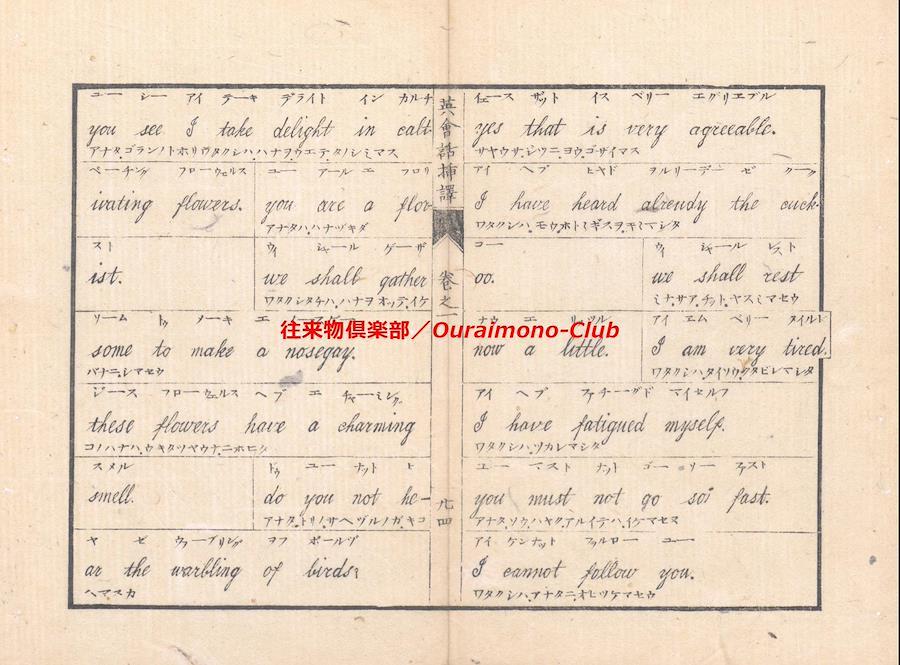 ユー シー アイ テーキ デライト イン カルチ
you see I take delight in cult-
アナタ.ゴランノトホリ.ワタクシハ.ハナヲ.ウエテ.タノシミマス
ベーチング フローウェルス ユー アール エ フロリ
ivating flowers. you are a flor-
アナタハ.ハナヅキダ
スト ウィ シャール ゲーザ
ist. we shall gather
ワタクシタチハ.ハナヲ オッテ.イケ
ソーム トゥ メーキ エ
some to make a nosegay.
バナニ.シマセウ
ジース フローウェルス ヘブ エ チャーミング
these flowers have a charming
コノハナハ.ウキタツヤウナ.ニホヒダ
スメル ドゥ ユー ナット ヒ
smell. do you not he-
アナタ.トリノ.サヘヅルノガ.キコ
ヤ ゼ ウァーブリング ヲフ ボールヅ
ar the warbling of birds;
ヘマスカ
英會話挿譯
卷之一
廿四
イェース ザット イス ベリー エグリエブル
yes that is very agreeable.
サヤウサ.ジツニ.ヨウ.ゴザイマス
アイ ヘブ ヒヤド ヲルリーデー ゼ クーク
I have heard already the cuck-
ワタクシハ.モウ.ホトトギスヲ.キキマシタ
コー ウィ シャール レスト
oo. we shall rest
ミナサア.チット.ヤスミマセウ
ナウ エ リッツル アイ エム ベリー タイルド
now a little. I am very tired.
ワタクシハ.タイソウ.クタビレマシタ
アイ ヘブ ファチーグド マイセルフ
I have fatigued myself.
ワタクシハ.ツカレマシタ
ユー マスト ナット ゴー ソー ファスト
you must not go so fast.
アナタ.ソウ.ハヤク.アルイテハ.イケマセヌ
アイ ケンナット フォルロー ユー
I cannot follow you.
ワタクシハ.アナタニ.オヒツケマセウ
往来物倶楽部／Ouraimono-Club